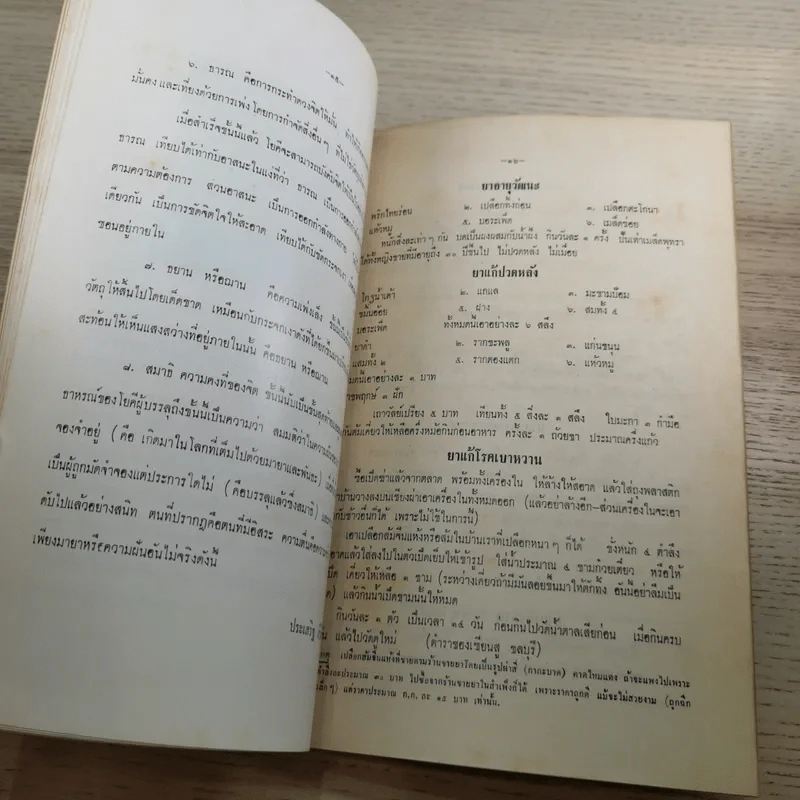 —๑๕—
๖. ธารณ คือการกระทำดวงจิตให้มั่น ทำให้
มั่นคง และเที่ยงด้วยการเพ่ง โดยการกำจัดสิ่งอื่น ๆ ที่ไม่ใช่
เมื่อสำเร็จขั้นนี้แล้ว โยคีจะสามารถบังคับจิตให้
ธารณ เทียบได้เท่ากับอาสนะในแง่ที่ว่า ธารณ เป็นการออก
ตามความต้องการ ส่วนอาสนะ เป็นการออกกำลังทางกาย
เดียวกัน เป็นการขัดจิตใจให้สะอาด เทียบได้กับขัดกระจกเงา
ซ่อนอยู่ภายใน
๗. ธยาน หรือฌาน คือความเพ่งเล็ง ขั้นนี้
วัตถุให้สิ้นไปโดยเด็ดขาด เหมือนกับกระจกเงาดังที่ได้ยกขึ้นมา
สะท้อนให้เห็นแสงสว่างที่อยู่ภายในนั้น คือธยาน หรือฌาน
๘. สมาธิ ความคงที่ของจิต ขั้นนี้นับเป็นขั้นสุดท้าย
ธาหรณ์ของโยคีผู้บรรลุถึงขั้นนี้เป็นความว่า สมมติว่าในความ
จองจำอยู่ (คือ เกิดมาในโลกที่เต็มไปด้วยมายาและพันธะ)
เป็นผู้ถูกมัดจำจองแต่ประการใดไม่ (คือบรรลุแล้วซึ่งสมาธิ)
ดับไปแล้วอย่างสนิท ตนที่ปรากฏคือตนที่มีอิสระ ความตื่นคือความ
เพียงมายาหรือความฝันอันไม่จริงดังนี้
ประเสริฐ
—๑๖—
ยาอายุวัฒนะ
พริกไทยร่อน ๒. เปลือกทิ้งถ่อน ๓. เปลือกตะโกนา
แห้วหมู ๕. บอระเพ็ด ๖. เมล็ดข่อย
หนักสิ่งละเท่า ๆ กัน บดเป็นผงผสมกับน้ำผึ้ง กินวันละ ๑ ครั้ง ปั้นเท่าเมล็ดพุทรา
ได้ทั้งหญิงชายที่มีอายุถึง ๓๐ ปีขึ้นไป ไม่ปวดหลัง ไม่เมื่อย
ยาแก้ปวดหลัง
โกฐน้ำเต้า ๒. แกแล ๓. มะขามป้อม
ขมิ้นอ้อย ๕. ฝาง ๖. สมทั้ง ๕
บอระเพ็ด ทั้งหมดนี้เอาอย่างละ ๖ สลึง
ยาดำ ๒. รากชะพลู ๓. แก่นขนุน
แสมทั้ง ๒ ๕. รากตองแตก ๖. แห้วหมู
หมดนี้เอาอย่างละ ๑ บาท
ราชพฤกษ์ ๓ ฝัก
เถาวัลย์เปรียง ๕ บาท เทียนทั้ง ๕ สิ่งละ ๑ สลึง ใบมะกา ๑ กำมือ
กันต้มเคี่ยวให้เหลือครึ่งหม้อกินก่อนอาหาร ครั้งละ ๑ ถ้วยชา ประมาณครึ่งแก้ว
ยาแก้โรคเบาหวาน
ซื้อเป็ดฆ่าแล้วจากตลาด พร้อมทั้งเครื่องใน ให้ล้างให้สะอาด แล้วใส่ถุงพลาสติก
บ้านวางลงบนเขียงผ่าเอาเครื่องในทั้งหมดออก (แล้วอย่าล้างอีก—ส่วนเครื่องในจะเอา
กับข้าวอื่นก็ได้ เพราะไม่ใช้ในการนี้)
เอาเปลือกส้มจีนแห้งหรือส้มในบ้านเราที่เปลือกหนา ๆ ก็ได้ ชั่งหนัก ๕ ตำลึง
อาดแล้วใส่ลงไปในตัวเป็ดเย็บให้เข้ารูป ใส่น้ำประมาณ ๕ ชามก๋วยเตี๋ยว หรือให้
เป็ด เคี่ยวให้เหลือ ๑ ชาม (ระหว่างเคี่ยวถ้ามีมันลอยขึ้นมาให้ตักทิ้ง อันนี้อย่าลืมเป็น
) แล้วกินน้ำเป็ดชามนั้นให้หมด
กินวันละ ๑ ตัว เป็นเวลา ๑๕ วัน ก่อนกินไปวัดน้ำตาลเสียก่อน เมื่อกินครบ
แล้วไปวัดดูใหม่ (ตำราของเซียนสู ชลบุรี)
เปลือกส้มชิ้นแห้งที่ขายตามร้านขายยาโดยเป็นรูปผ่าสี่ (กากะบาด) คาดไหมแดง ถ้าจะแพงไปเพราะ
ตำลึงละประมาณ ๓๐ บาท ไปซื้อจากร้านขายยาในสำเพ็งก็ได้ เพราะราคาถูกดี แม้จะไม่สวยงาม (ถูกฉีก
เล็ก ๆ) แต่ราคาประมาณ ก.ก. ละ ๑๕ บาท เท่านั้น.